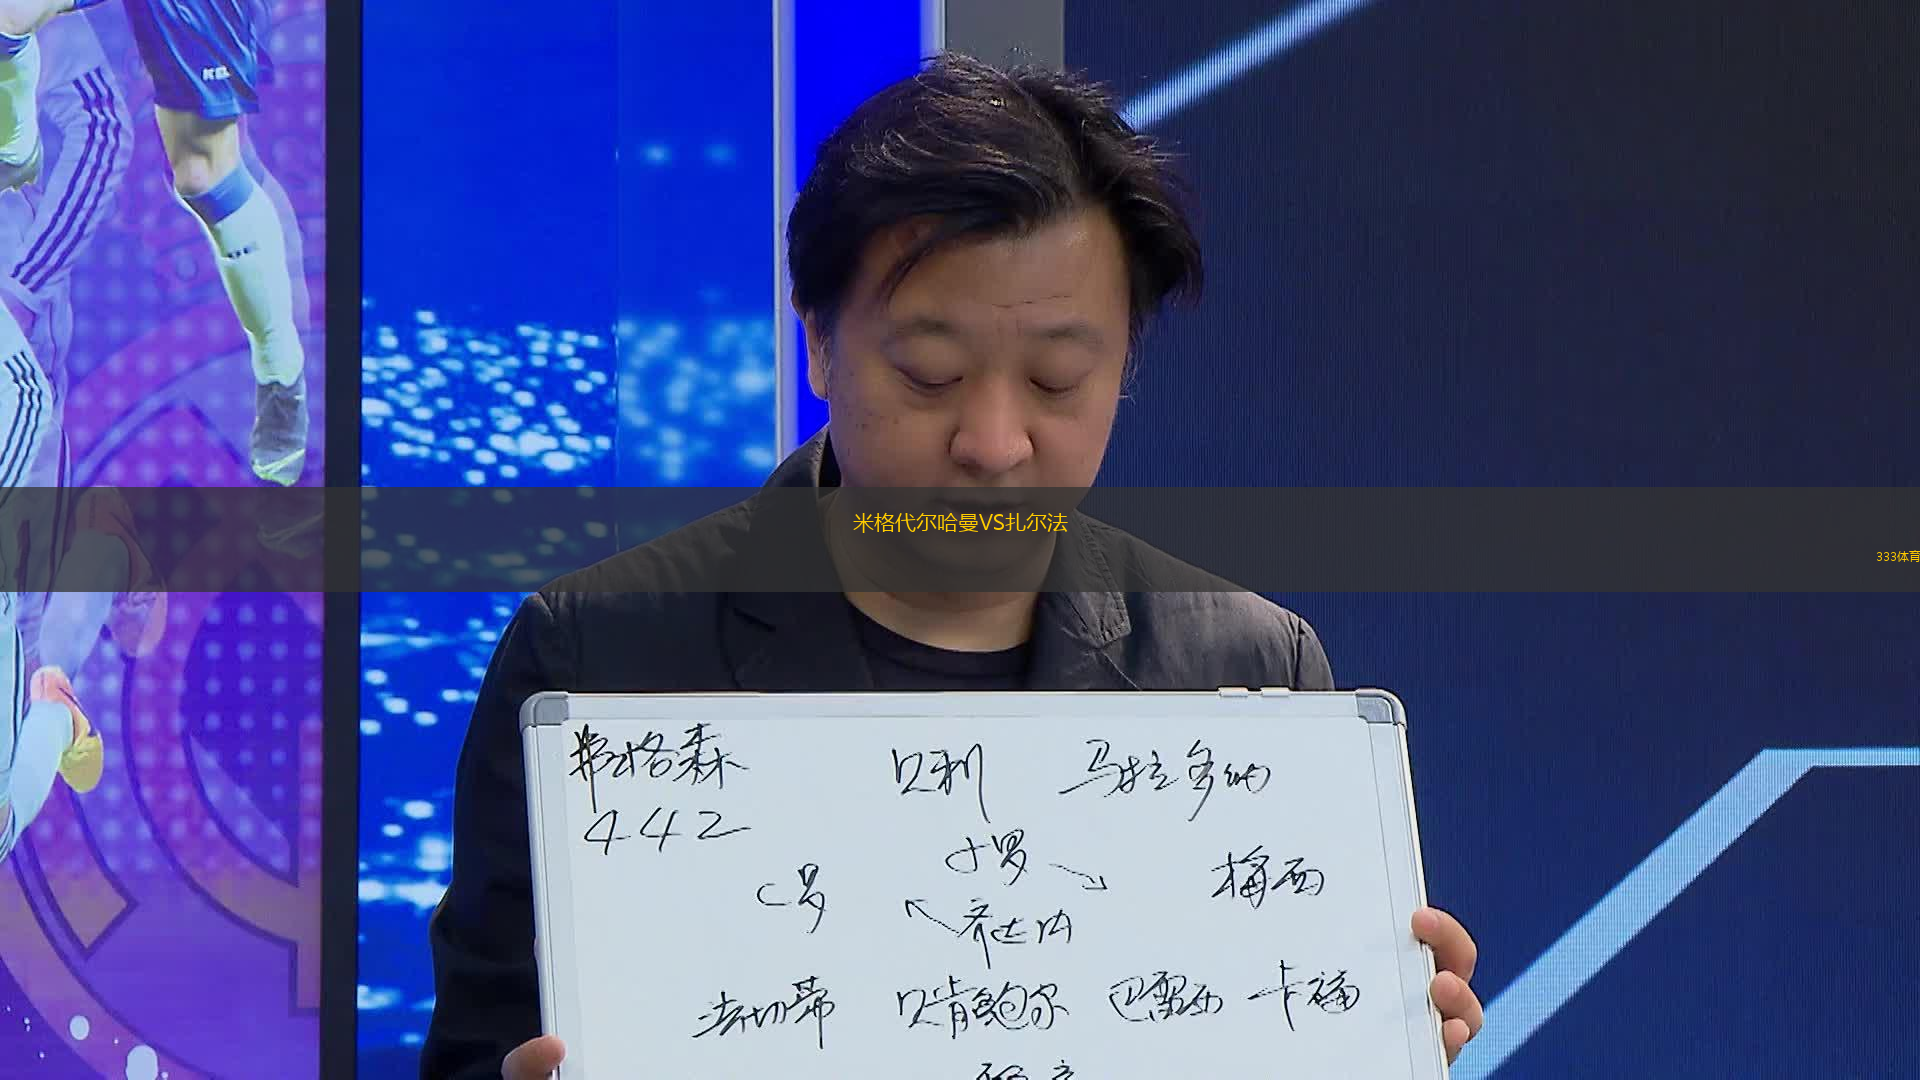 米格代尔哈曼VS扎尔法
333体育
弗格森 贝利 马拉多纳
442
小罗
C罗 梅西
齐达内
法切蒂 贝肯鲍尔 巴雷西 卡福